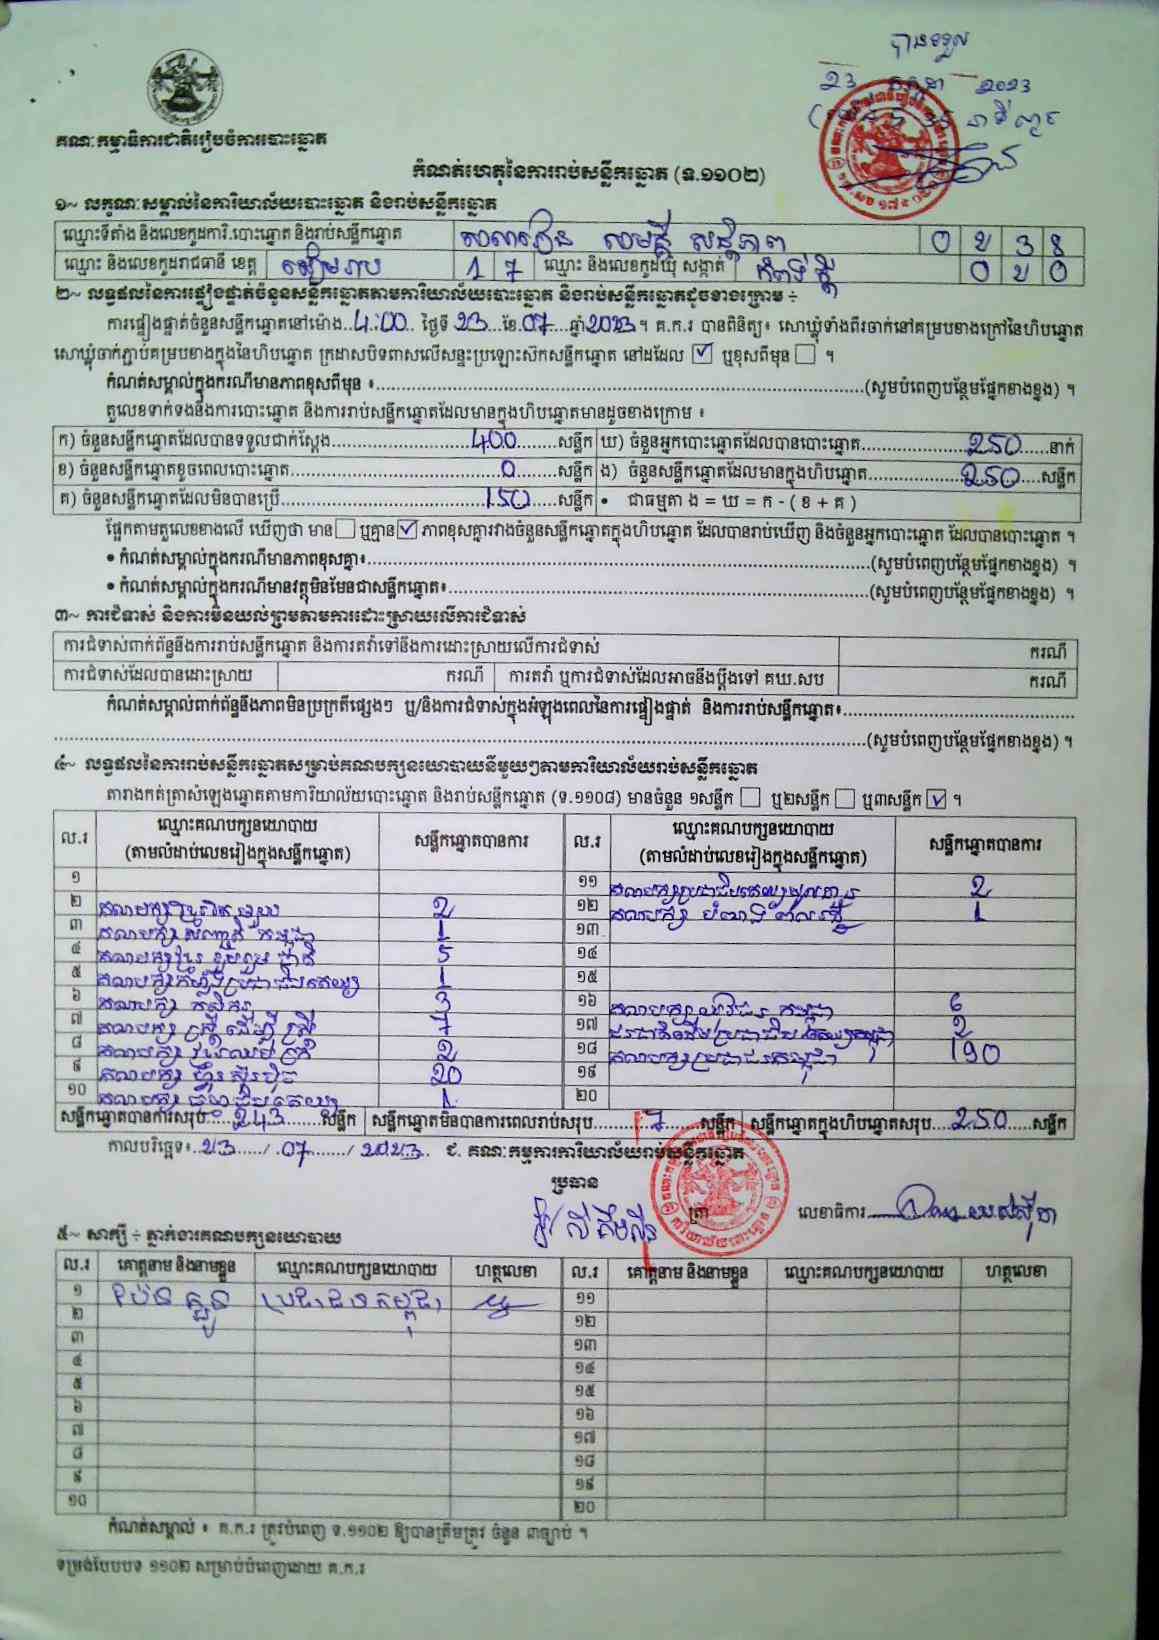 បានទទួល
23 កក្កដា 2023
គណៈកម្មាធិការជាតិរៀបចំការបោះឆ្នោត
កំណត់ហេតុនៃការរាប់សន្លឹកឆ្នោត (ទ.១១០២)
១~ លក្ខណៈសម្គាល់នៃការិយាល័យបោះឆ្នោត និងរាប់សន្លឹកឆ្នោត
ឈ្មោះទីតាំង និងលេខកូដការិ.បោះឆ្នោត និងរាប់សន្លឹកឆ្នោត សាលារៀន សាមគ្គី សន្តិភាព 0 2 3 8
ឈ្មោះ និងលេខកូដរាជធានី ខេត្ត សៀមរាប 1 7 ឈ្មោះ និងលេខកូដឃុំ សង្កាត់ 0 2 0
២~ លទ្ធផលនៃការផ្ទៀងផ្ទាត់ចំនួនសន្លឹកឆ្នោតតាមការិយាល័យបោះឆ្នោត និងរាប់សន្លឹកឆ្នោតដូចខាងក្រោម ÷
ការផ្ទៀងផ្ទាត់ចំនួនសន្លឹកឆ្នោតនៅម៉ោង..4:00.. ថ្ងៃទី 23...ខែ.07....ឆ្នាំ2023។ គ.ក.រ បានពិនិត្យ៖ សោឃ្លុំទាំងពីរចាក់នៅគម្របខាងក្រៅនៃហិបឆ្នោត
សោឃ្លុំចាក់ភ្ជាប់គម្របខាងក្នុងនៃហិបឆ្នោត ក្រដាសបិទពាសលើសន្ទះប្រឡោះស៊កសន្លឹកឆ្នោត នៅដដែល ☑ ឬខុសពីមុន ☐ ។
កំណត់សម្គាល់ក្នុងករណីមានភាពខុសពីមុន ៖......(សូមបំពេញបន្ថែមផ្នែកខាងខ្នង) ។
តួលេខទាក់ទងនឹងការបោះឆ្នោត និងការរាប់សន្លឹកឆ្នោតដែលមានក្នុងហិបឆ្នោតមានដូចខាងក្រោម ៖
ក) ចំនួនសន្លឹកឆ្នោតដែលបានទទួលជាក់ស្តែង......400......សន្លឹក ឃ) ចំនួនអ្នកបោះឆ្នោតដែលបានបោះឆ្នោត......250......នាក់
ខ) ចំនួនសន្លឹកឆ្នោតខូចពេលបោះឆ្នោត......0......សន្លឹក ង) ចំនួនសន្លឹកឆ្នោតដែលមានក្នុងហិបឆ្នោត......250......សន្លឹក
គ) ចំនួនសន្លឹកឆ្នោតដែលមិនបានប្រើ......150......សន្លឹក • ជាធម្មតា ង = ឃ = ក - ( ខ + គ )
ផ្អែកតាមតួលេខខាងលើ ឃើញថា មាន ☐ ឬគ្មាន ☑ ភាពខុសគ្នារវាងចំនួនសន្លឹកឆ្នោតក្នុងហិបឆ្នោត ដែលបានរាប់ឃើញ និងចំនួនអ្នកបោះឆ្នោត ដែលបានបោះឆ្នោត ។
• កំណត់សម្គាល់ក្នុងករណីមានភាពខុសគ្នា៖......(សូមបំពេញបន្ថែមផ្នែកខាងខ្នង) ។
• កំណត់សម្គាល់ក្នុងករណីមានវត្ថុមិនមែនជាសន្លឹកឆ្នោត៖......(សូមបំពេញបន្ថែមផ្នែកខាងខ្នង) ។
៣~ ការជំទាស់ និងការមិនយល់ព្រមតាមការដោះស្រាយលើការជំទាស់
ការជំទាស់ពាក់ព័ន្ធនឹងការរាប់សន្លឹកឆ្នោត និងការតវ៉ាទៅនឹងការដោះស្រាយលើការជំទាស់ ករណី
ការជំទាស់ដែលបានដោះស្រាយ ករណី ការតវ៉ា ឬការជំទាស់ដែលអាចនឹងប្តឹងទៅ គឃ.សប ករណី
កំណត់សម្គាល់ពាក់ព័ន្ធនឹងភាពមិនប្រក្រតីផ្សេងៗ ឬ/និងការជំទាស់ក្នុងអំឡុងពេលនៃការផ្ទៀងផ្ទាត់ និងការរាប់សន្លឹកឆ្នោត៖......
......(សូមបំពេញបន្ថែមផ្នែកខាងខ្នង) ។
៤~ លទ្ធផលនៃការរាប់សន្លឹកឆ្នោតសម្រាប់គណបក្សនយោបាយនីមួយៗតាមការិយាល័យរាប់សន្លឹកឆ្នោត
តារាងកត់ត្រាសំឡេងឆ្នោតតាមការិយាល័យបោះឆ្នោត និងរាប់សន្លឹកឆ្នោត (ទ.១១០៨) មានចំនួន ១សន្លឹក ☐ ឬ២សន្លឹក ☐ ឬ៣សន្លឹក ☑ ។
ល.រ ឈ្មោះគណបក្សនយោបាយ (តាមលំដាប់លេខរៀងក្នុងសន្លឹកឆ្នោត) សន្លឹកឆ្នោតបានការ ល.រ ឈ្មោះគណបក្សនយោបាយ (តាមលំដាប់លេខរៀងក្នុងសន្លឹកឆ្នោត) សន្លឹកឆ្នោតបានការ
១ ១១ គណបក្សប្រជាធិបតេយ្យមូលដ្ឋាន 2
២ គណបក្ស 2 ១២ គណបក្ស 1
៣ គណបក្ស សញ្ជាតិ កម្ពុជា 1 ១៣
៤ គណបក្សខ្មែរ រួបរួម ជាតិ 5 ១៤
៥ គណបក្សកម្លាំងប្រជាធិបតេយ្យ 1 ១៥
៦ គណបក្ស កសិករ 3 ១៦ គណបក្ស យុវជន កម្ពុជា 6
៧ គណបក្ស ស្ត្រី ដើម្បី ស្ត្រី 7 ១៧ 2
៨ គណបក្ស 2 ១៨ គណបក្សប្រជាជនកម្ពុជា 190
៩ គណបក្ស ហ្វ៊ុនស៊ិនប៉ិច 20 ១៩
១០ គណបក្ស 1 ២០
សន្លឹកឆ្នោតបានការសរុប......243......សន្លឹក សន្លឹកឆ្នោតមិនបានការពេលរាប់សរុប......7......សន្លឹក សន្លឹកឆ្នោតក្នុងហិបឆ្នោតសរុប...250......សន្លឹក
កាលបរិច្ឆេទ៖..23....../ .07......../ 2023.. ជ. គណៈកម្មការការិយាល័យរាប់សន្លឹកឆ្នោត
ប្រធាន
ត្រា លេខាធិការ
៥~ សាក្សី ÷ ភ្នាក់ងារគណបក្សនយោបាយ
ល.រ គោត្តនាម និងនាមខ្លួន ឈ្មោះគណបក្សនយោបាយ ហត្ថលេខា ល.រ គោត្តនាម និងនាមខ្លួន ឈ្មោះគណបក្សនយោបាយ ហត្ថលេខា
១ ប្រជាជនកម្ពុជា ១១
២ ១២
៣ ១៣
៤ ១៤
៥ ១៥
៦ ១៦
៧ ១៧
៨ ១៨
៩ ១៩
១០ ២០
កំណត់សម្គាល់ ៖ គ.ក.រ ត្រូវបំពេញ ទ.១១០២ ឱ្យបានត្រឹមត្រូវ ចំនួន ៣ច្បាប់ ។
ទម្រង់បែបបទ ១១០២ សម្រាប់បំពេញដោយ គ.ក.រ